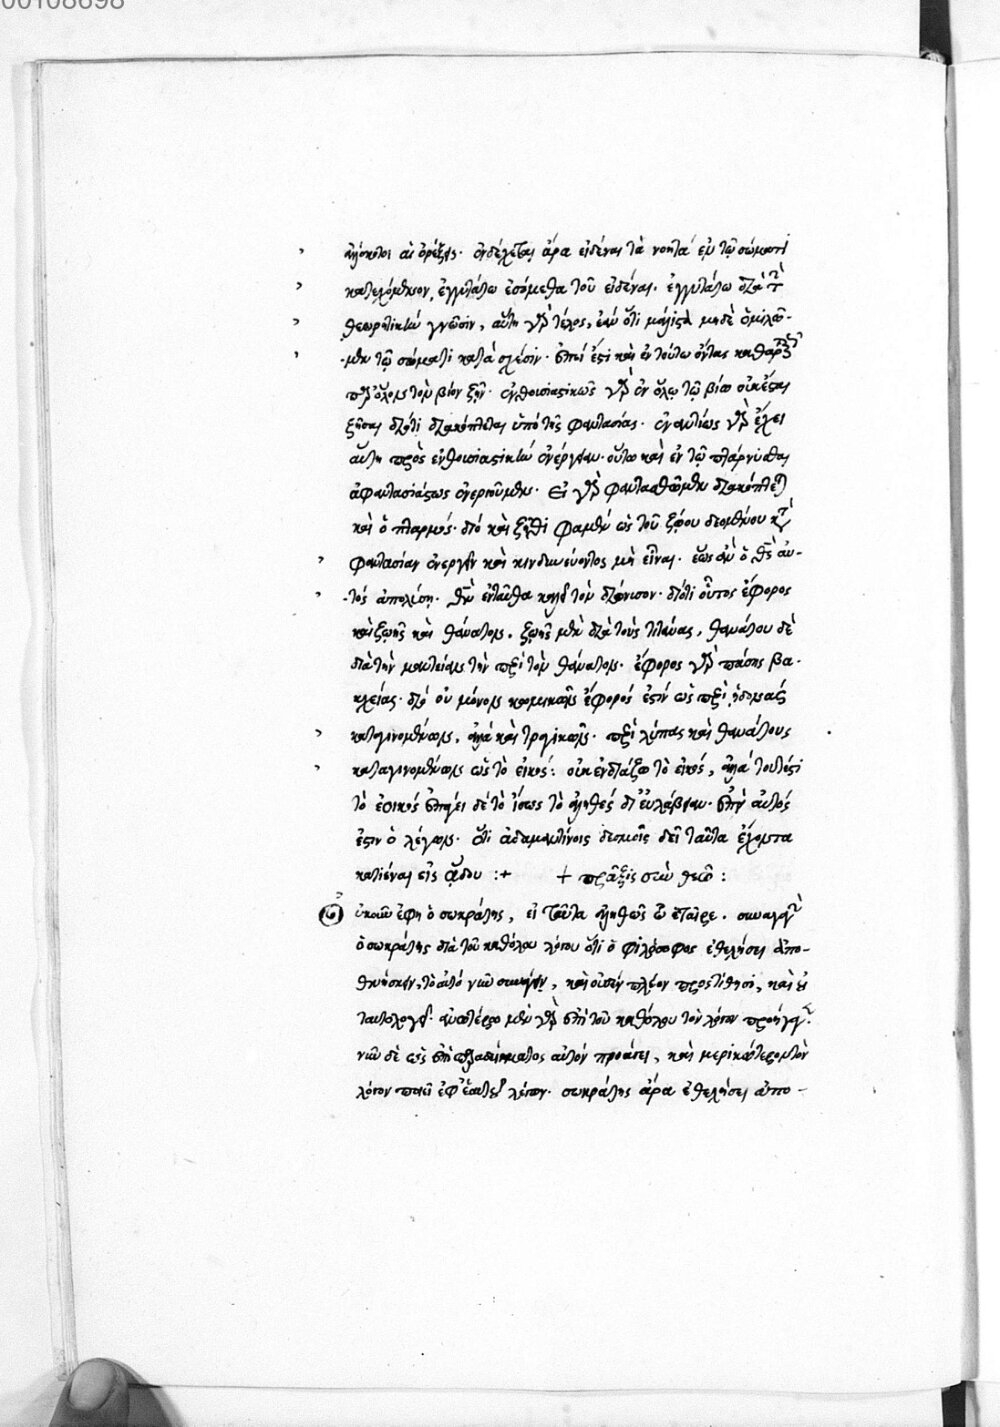 00108698
αἱ ὀρέξεις. ἐνδέχεται ἄρα εἰδέναι τὰ νοητὰ ἐν τῷ σώματι
κατεχόμενον, ἐγγυτάτω ἐσόμεθα τοῦ εἰδέναι. ἐγγυτάτω διὰ τὴν
θεωρητικὴν γνῶσιν, αὕτη γὰρ τέλος, ἐὰν ὅτι μάλιστα μηδὲ ὁμιλῶ-
μεν τῷ σώματι κατὰ σχέσιν. ἐπεί ἐστι καὶ ἐν τούτῳ ὄντας καθαρῶς
τὸν βίον ζῆν. ἐνθουσιαστικῶς γὰρ ἐν ὅλῳ τῷ βίῳ οὐκ ἔστι
ζῆσαι διότι διακόπτεται ὑπὸ τῆς φαντασίας. ἐναντίως γὰρ ἔχει
αὕτη πρὸς ἐνθουσιαστικὴν ἐνέργειαν. οὕτω καὶ ἐν τῷ πτάρνυσθαι
ἀφαντασιάστως ἐνεργοῦμεν. εἰ γὰρ φαντασθῶμεν διακόπτεται
καὶ ὁ πταρμός. διὸ καὶ ζῆθι φαμὲν ὡς τοῦ ζῴου δεομένου κατὰ
φαντασίαν ἐνεργεῖν καὶ κινδυνεύοντος μὴ εἶναι. ἕως ἂν ὁ θεὸς αὐ-
τὸς ἀπολύσῃ. θεὸν ἐνταῦθα καλεῖ τὸν διόνυσον. διότι οὗτος ἔφορος
καὶ ζωῆς καὶ θανάτου. ζωῆς μὲν διὰ τοὺς τιτᾶνας, θανάτου δὲ
διὰ τὴν μαντείαν τὴν περὶ τὸν θάνατον. ἔφορος γὰρ πάσης βα-
κχείας. διὸ οὐ μόνον κωμικῶν ἔφορός ἐστιν ὡς περὶ ἡδονὰς
καταγινομένων, ἀλλὰ καὶ τραγικῶν. περὶ λύπας καὶ θανάτους
καταγινομένων ὡς τὸ εἰκός: οὐκ ἐνδοιάζω τὸ εἰκός, ἀλλὰ τουτέστι
τὸ ἐοικός ἐπάγει δὲ τὸ ἴσως τὸ ἀληθές δι' εὐλάβειαν. ἐπεὶ αὐτός
ἐστιν ὁ λέγων. ὅτι ἀδαμαντίνοις δεσμοῖς δεῖ ταῦτα ἔχοντα
κατιέναι εἰς ᾅδου :+ + πρᾶξις σὺν θεῷ :
οὐκοῦν ἔφη ὁ σωκράτης, εἰ ταῦτα ἀληθῶς ὦ ἑταῖρε. συναγαγὼν
ὁ σωκράτης διὰ τοῦ καθόλου λόγου ὅτι ὁ φιλόσοφος ἐθελήσει ἀπο-
θνήσκειν, τὸ αὐτὸ νῦν συνάγει, καὶ οὐδὲν πλέον προστίθησι, καὶ οὐ
ταυτολογεῖ. ἀνωτέρω μὲν γὰρ ἐπὶ τοῦ καθόλου τὸν λόγον προήγαγεν.
νῦν δὲ ὡς ἐπὶ αὐτὸν προάγει, καὶ μερικώτερον τὸν
λόγον ποιεῖ ἐφ' ἑαυτοῦ λέγων. σωκράτης ἄρα ἐθελήσει ἀπο-